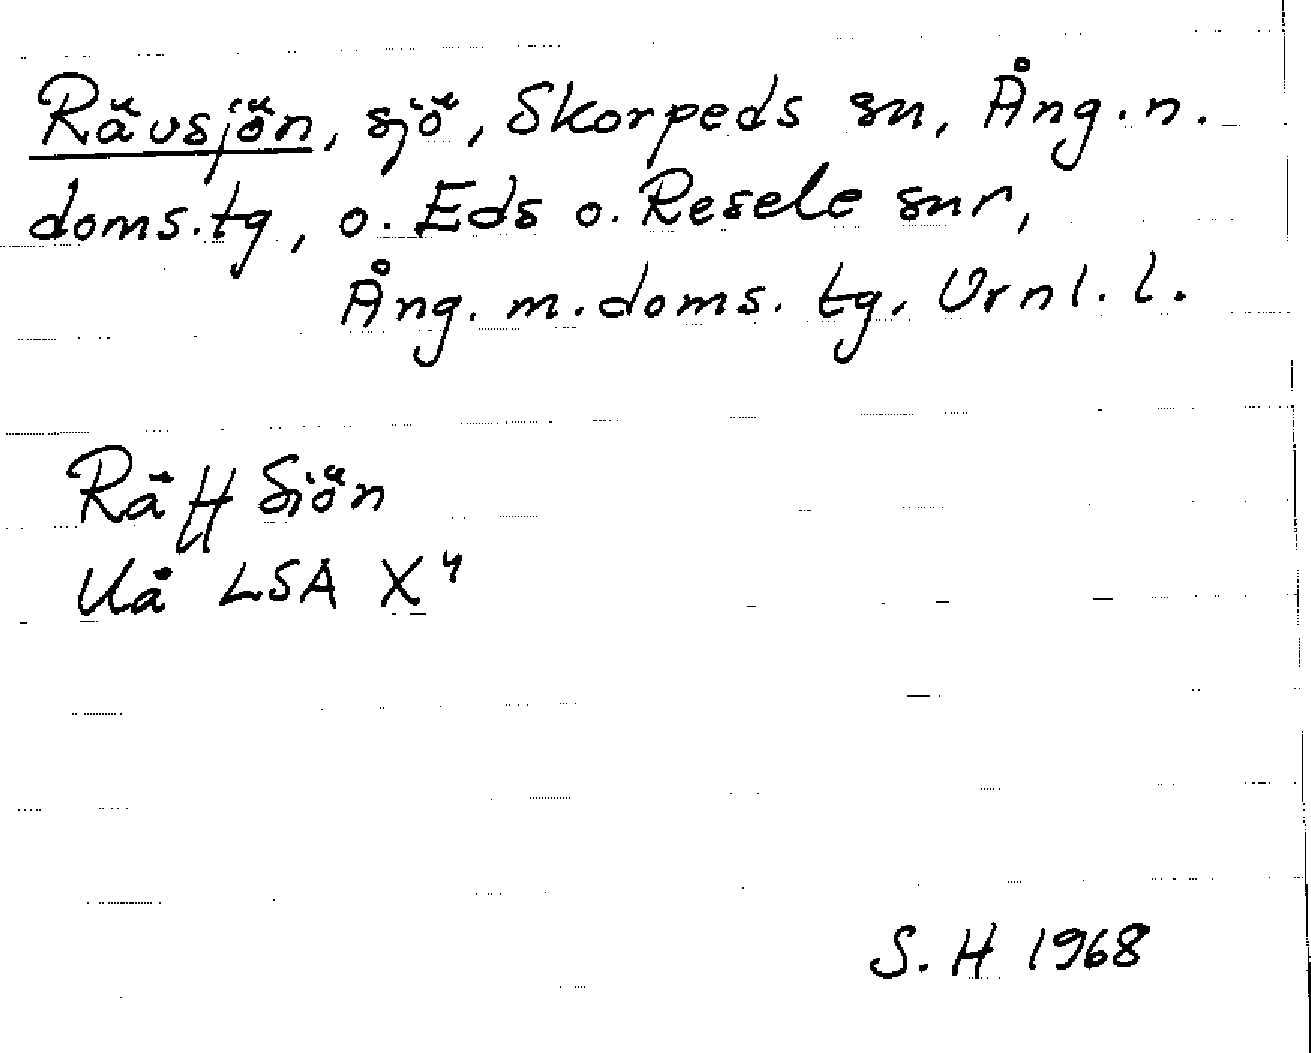 Rävsjön, sjö, Skorpeds sn, Ång. n.
doms.tg, o. Eds o. Resele snr,
Ång. m. doms. tg, Vrnl. l.
Räff Siön
Uå LSA X4
S. H 1968